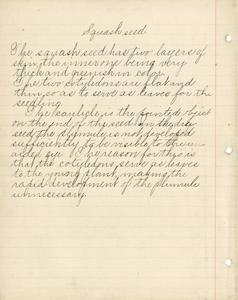 Squash seed
The squash seed has two layers of
skin, the inner one being very
thick and greenish in color.
The two cotyledons are flat and
thin, so as to serve as leaves for the
seedling.
The caulicle is the pointed object
on the end of the seed. In the dry
seed the plumule is not developed
sufficiently to be visible to the un-
aided eye. The reason for this is
that the cotyledons serve as leaves
to the young plant, making the
rapid development of the plumule
unnecessary.